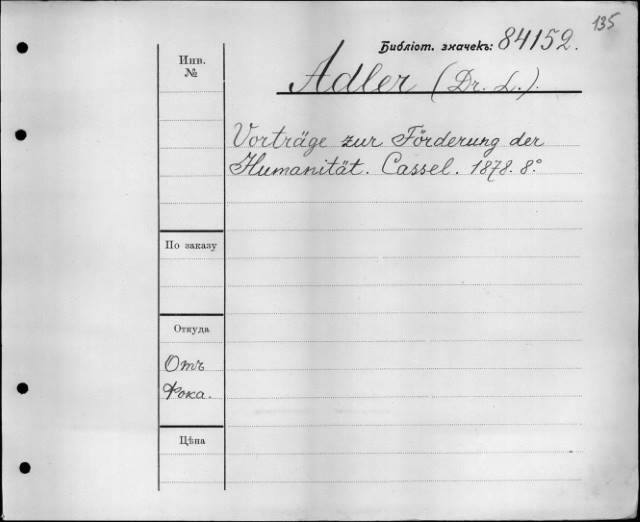 135
Библіот. значекъ: 84152.
Инв.
№
Adler (Dr. L.).
Vorträge zur Förderung der
Humanität. Cassel. 1878. 8.°
По заказу
Откуда
Отъ
Фока.
Цѣна